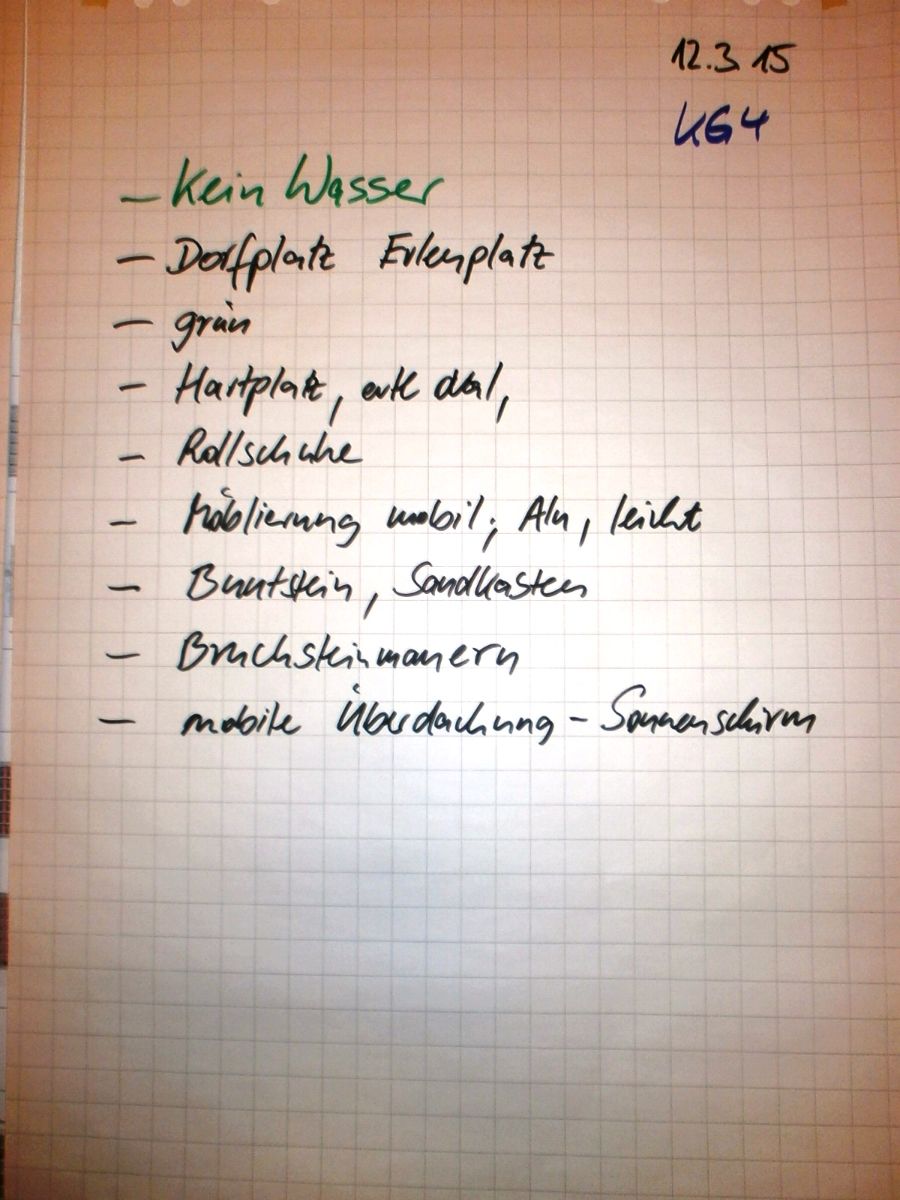 12.3.15
KG4
– Kein Wasser
– Dorfplatz Erlenplatz
– grün
– Hartplatz,
– Rollschuhe
– Möblierung mobil; Alu, leicht
– Buntstein, Sandkasten
– Bruchsteinmauern
– mobile Überdachung – Sonnenschirm